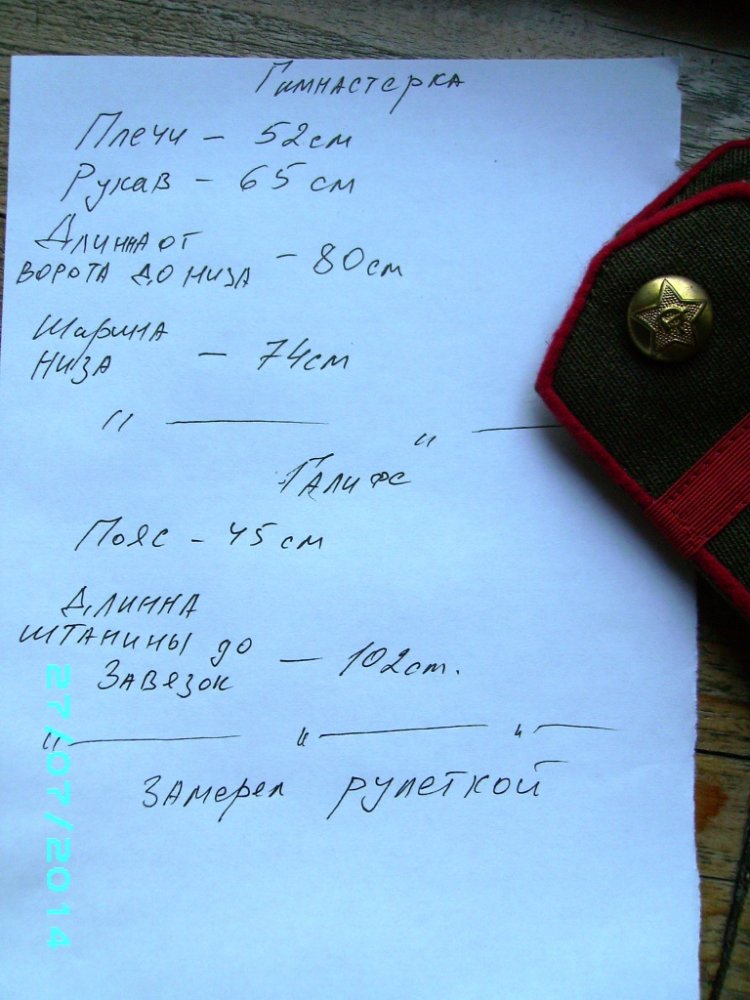 Гимнастерка
Плечи - 52см
Рукав - 65 см
Длинна от
ворота до низа - 80см
Шарина
низа - 74см
" — " —
Галифе
Пояс - 45 см
Длинна
штанины до
Завязок - 102cm.
" — " — " —
Замерял рулеткой
27/07/2014